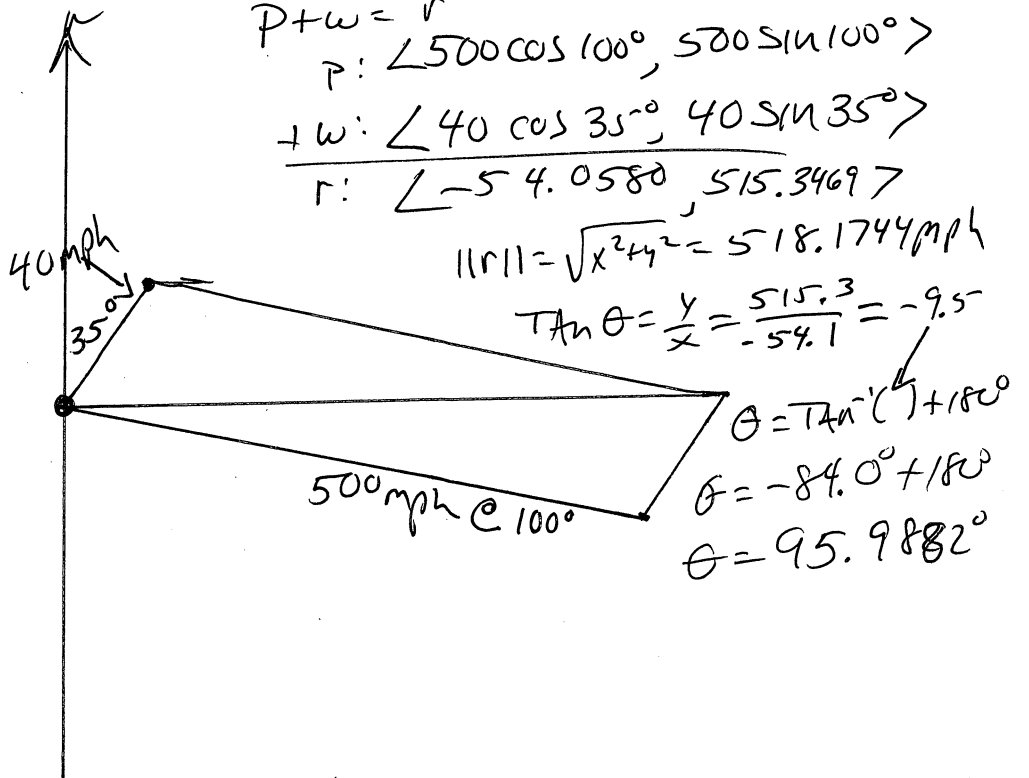 P+w = r
p: <500 cos 100°, 500 sin 100°>
+w: <40 cos 35°, 40 sin 35°>
r: <-54.0580, 515.3469>
||r|| = √x²+y² = 518.1744 mph
TAn θ = y/x = 515.3/-54.1 = -9.5
θ = TAn⁻¹( )+180°
θ = -84.0°+180°
θ = 95.9882°
40 mph
35°
500 mph @ 100°